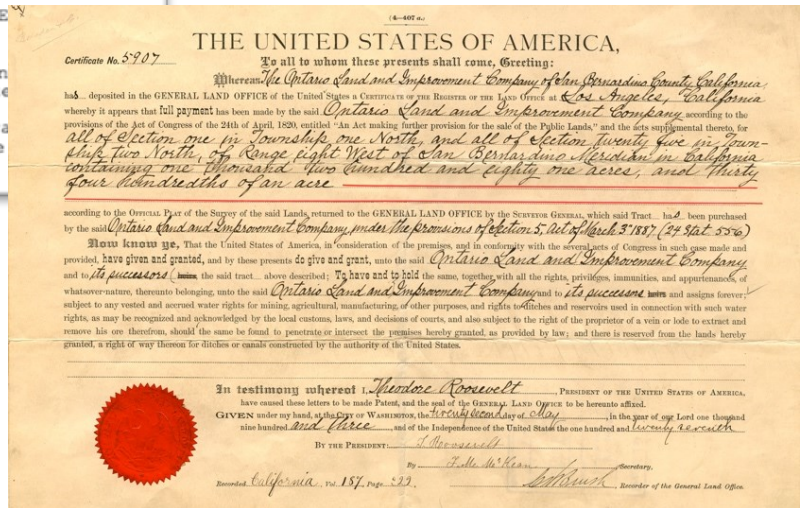 (4—407 a.)
THE UNITED STATES OF AMERICA,
Certificate No. 5907
To all to whom these presents shall come, Greeting:
Whereas The Ontario Land and Improvement Company of San Bernardino County California,
has deposited in the GENERAL LAND OFFICE of the United States a CERTIFICATE OF THE REGISTER OF THE LAND OFFICE AT Los Angeles, California
whereby it appears that full payment has been made by the said Ontario Land and Improvement Company according to the
provisions of the Act of Congress of the 24th of April, 1820, entitled “An Act making further provision for the sale of the Public Lands,” and the acts supplemental thereto, for
all of Section one in Township one North, and all of Section twenty five in Town-
ship two North, of Range eight West of San Bernardino Meridian in California
containing one thousand two hundred and eighty one acres, and thirty
four hundredths of an acre
according to the OFFICIAL PLAT of the Survey of the said Lands, returned to the GENERAL LAND OFFICE by the SURVEYOR GENERAL, which said Tract has been purchased
by the said Ontario Land and Improvement Company under the provisions of Section 5, act of March 3rd 1887 (24 Stat. 556)
Now know ye, That the United States of America, in consideration of the premises, and in conformity with the several acts of Congress in such case made and
provided, have given and granted, and by these presents do give and grant, unto the said Ontario Land and Improvement Company
and to its successors heirs, the said tract above described; To have and to hold the same, together with all the rights, privileges, immunities, and appurtenances, of
whatsoever nature, thereunto belonging, unto the said Ontario Land and Improvement Company and to its successors heirs and assigns forever;
subject to any vested and accrued water rights for mining, agricultural, manufacturing, or other purposes, and rights to ditches and reservoirs used in connection with such water
rights, as may be recognized and acknowledged by the local customs, laws, and decisions of courts, and also subject to the right of the proprietor of a vein or lode to extract and
remove his ore therefrom, should the same be found to penetrate or intersect the premises hereby granted, as provided by law; and there is reserved from the lands hereby
granted, a right of way thereon for ditches or canals constructed by the authority of the United States.
In testimony whereof I, Theodore Roosevelt, PRESIDENT OF THE UNITED STATES OF AMERICA,
have caused these letters to be made Patent, and the seal of the GENERAL LAND OFFICE to be hereunto affixed.
GIVEN under my hand, at the CITY OF WASHINGTON, the twenty second day of May, in the year of our Lord one thousand
nine hundred and three, and of the Independence of the United States the one hundred and twenty seventh
BY THE PRESIDENT: T. Roosevelt
By F. M. McKean, Secretary,
Recorded California, Vol. 157, Page
Recorder of the General Land Office.